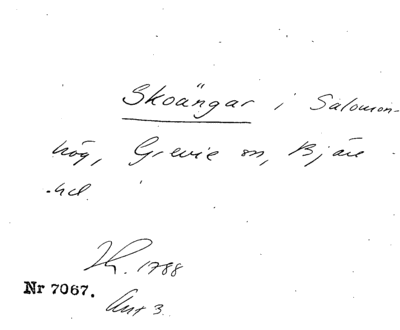 Skoängar i Salomon-
hög, Grevie sn, Bjäre
hd.
1788
Nr 7067.
Ant 3.